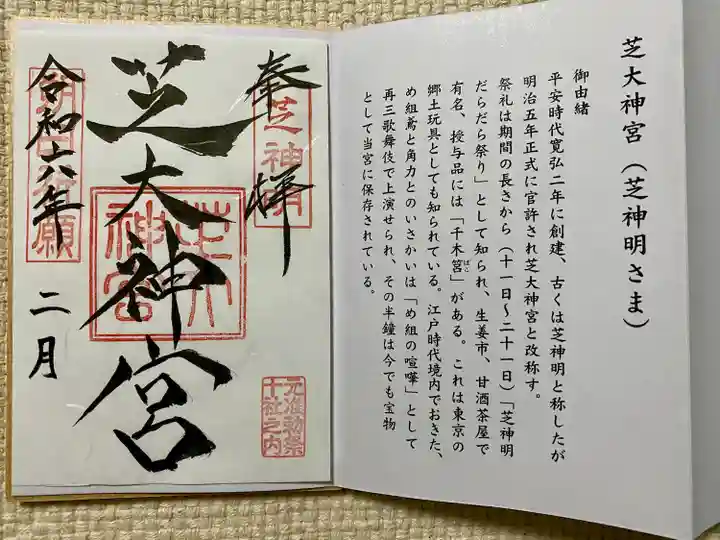 芝大神宮（芝神明さま）
御由緒
平安時代寛弘二年に創建、古くは芝神明と称したが
明治五年正式に官許され芝大神宮と改称す。
祭礼は期間の長さから（十一日～二十一日）「芝神明
だらだら祭り」として知られ、生姜市、甘酒茶屋で
有名、授与品には「千木筥ばこ」がある。これは東京の
郷土玩具としても知られている。江戸時代境内でおきた、
め組鳶と角力とのいさかいは「め組の喧嘩」として
再三歌舞伎で上演せられ、その半鐘は今でも宝物
として当宮に保存されている。
奉拝
芝神明
芝大神宮
芝大
神宮
元准勅祭
十社之内
令和六年
二月